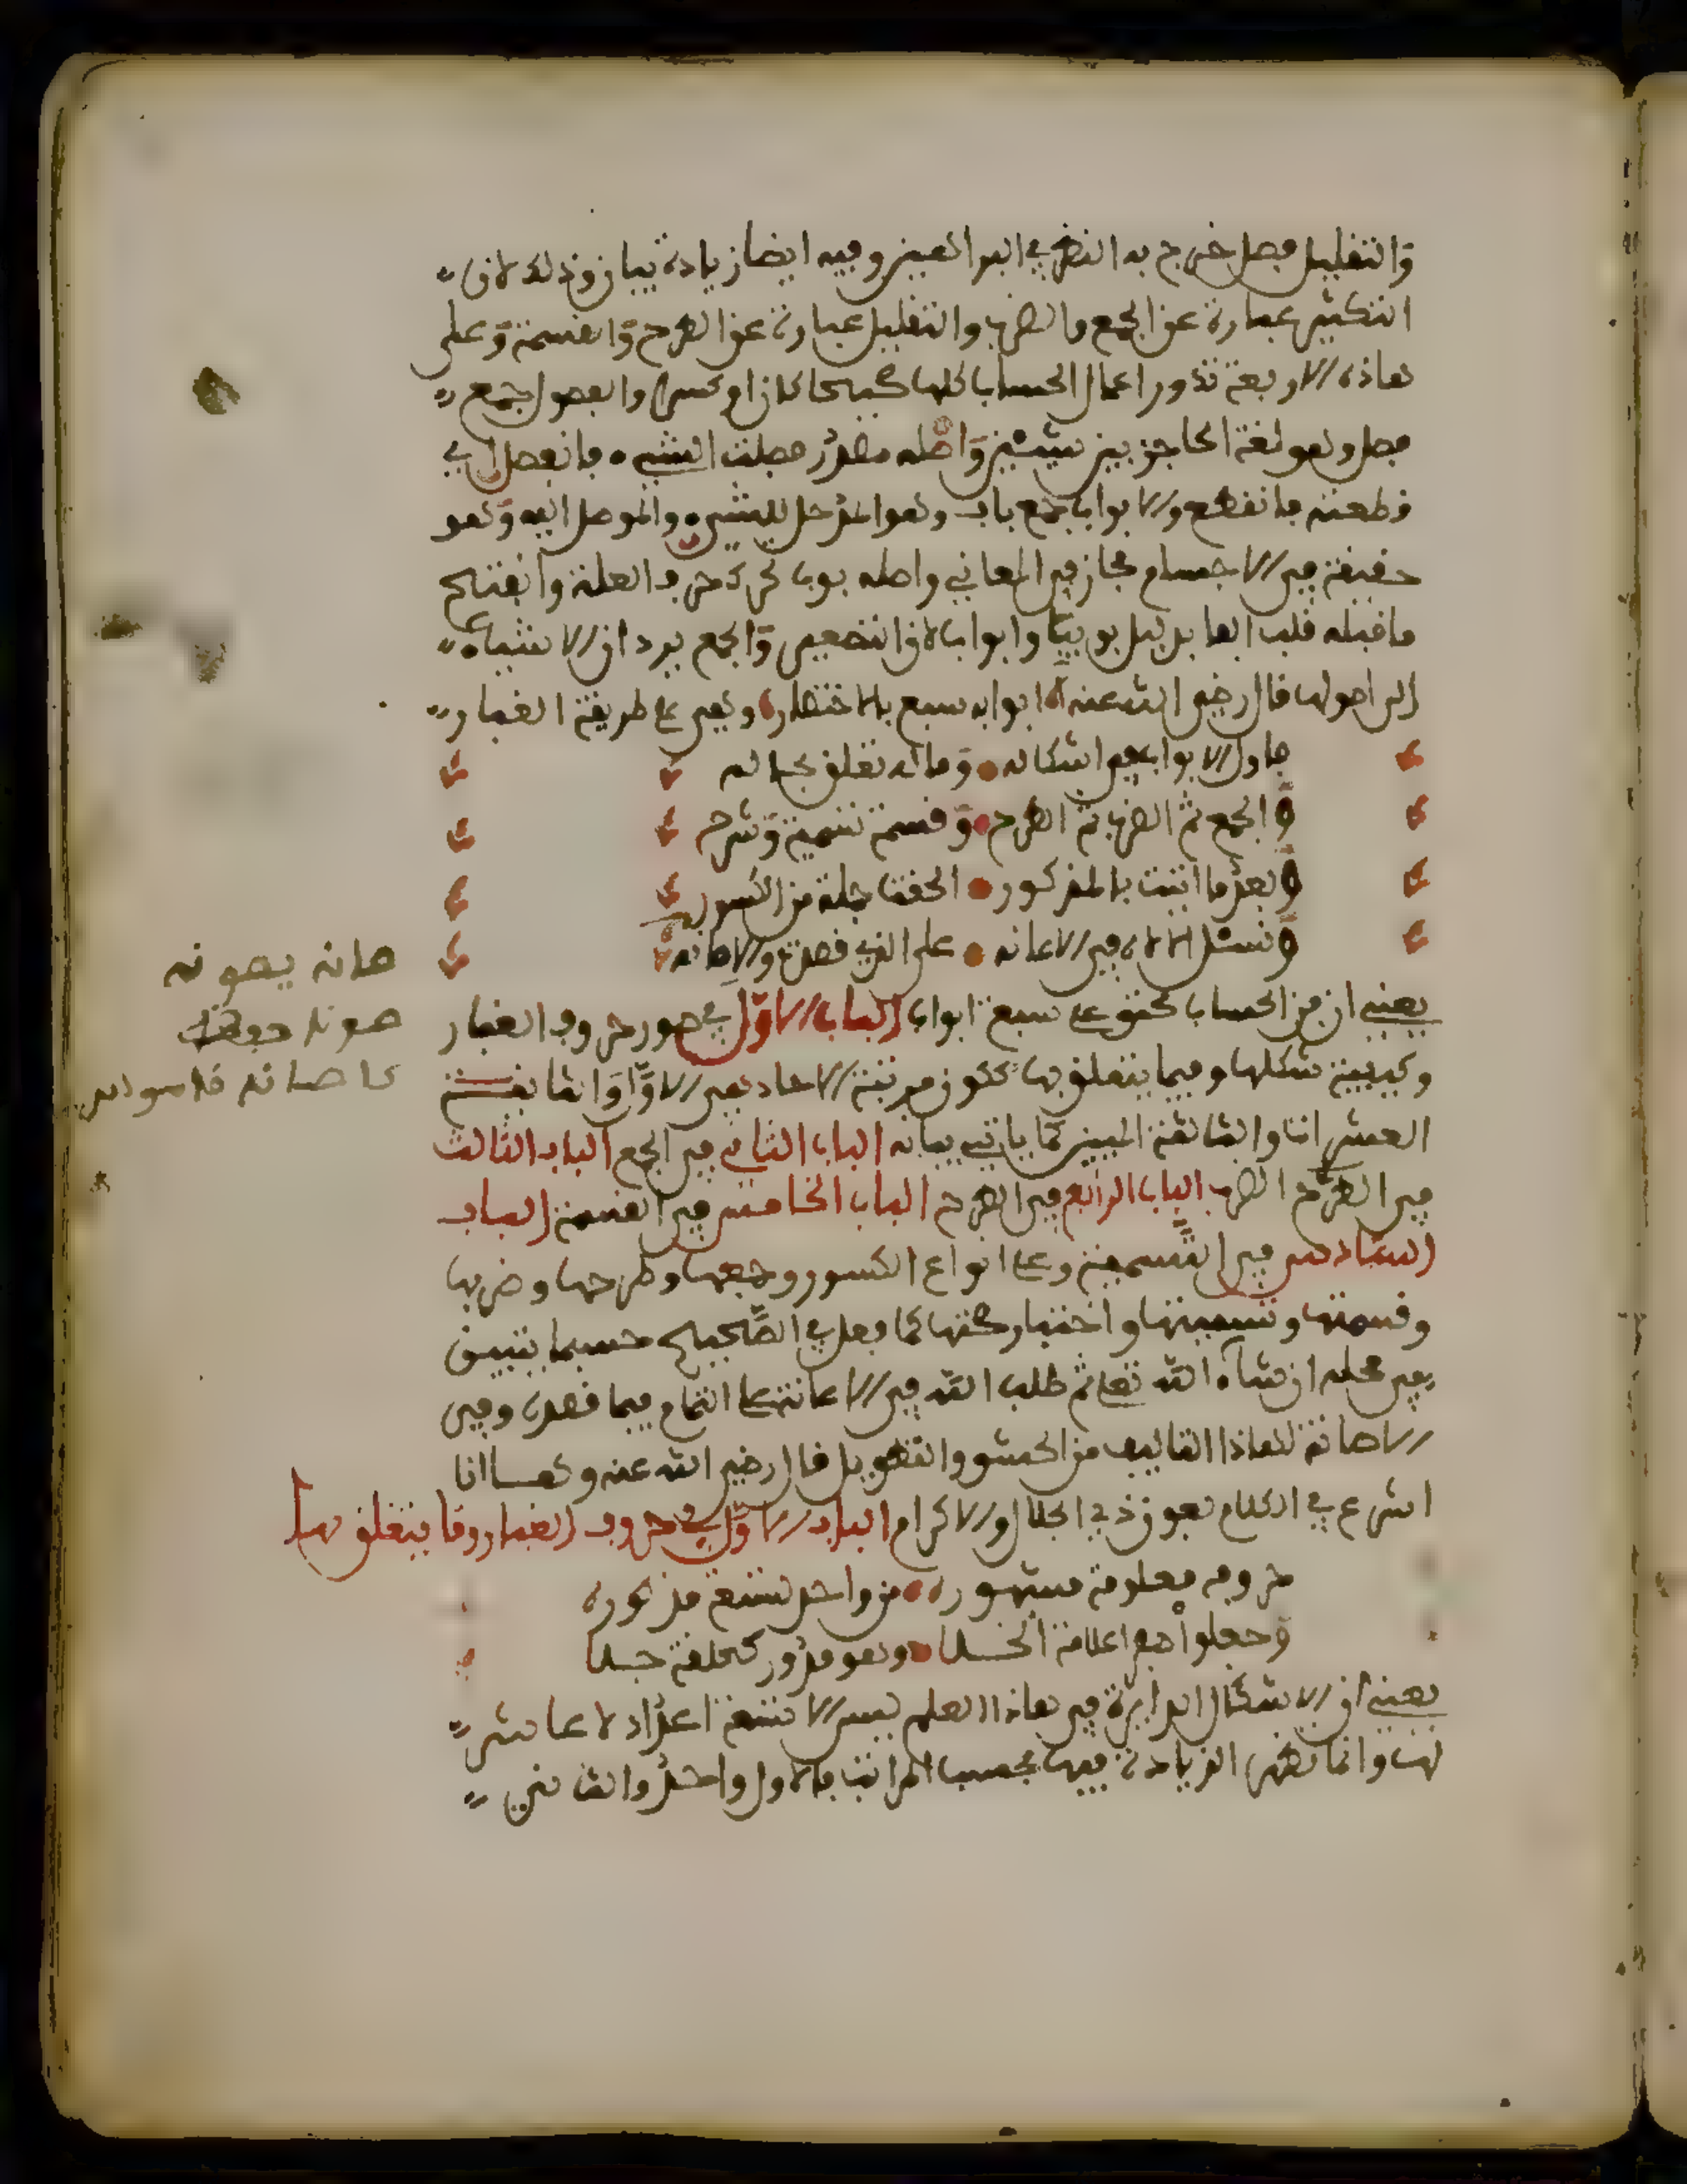 والتقليل فصل خرج به النظر في البراهين وفيه ايضا زيادة بيان وذلك لان
التكثير عبارة عن الجمع والضرب والتقليل عبارة عن الطرح والقسمة وعلى
هاذه الاربعة تدور اعمال الحساب كلها صحيحا كان او كسرا والفصول جمع
فصل وهو لغة الحاجز بين شيئين واصله مصدر فصلت الشيء فانفصل اي
قطعته فانقطع والابواب جمع باب وهو المدخل للشيء والموصل اليه وهو
حقيقة في الاجسام مجاز في المعاني واصله بوب تحرك حرف العلة وانفتح
ما قبله قلب الفا بدليل بويب وابواب لان التصغير والجمع يرد ان الاشياء
الى اصولها قال رضي الله عنه ابوابه سبع بالاختصار وهي على طريقة الغبار
فاول الابواب في اشكاله وما له تعلق بحاله
والجمع ثم الضرب ثم الطرح وقسمة تسمية وشرح
وبعد ما اتيت بالمذكور الحقت جملة من الكسور
ونسئل الالاه في الاعانه على الذي قصدت والاصانه
يعني ان فن الحساب يحتوي على سبعة ابواب الباب الاول في صور حروف الغبار
وكيفية شكلها وفيما يتعلق بها ككون مرتبة الاحاد هي الاولى والثانية
العشرات والثالثة الميين كما ياتي بيانه الباب الثاني في الجمع الباب الثالث
في الطرح الضرب الباب الرابع في الطرح الباب الخامس في القسمة الباب
السادس في التسمية وعلى انواع الكسور وجمعها وطرحها وضربها
وقسمتها وتسميتها واختبار صحتها كما فعل في الصحيح حسبما يتبين
في محله ان شاء الله تعلى ثم طلب الله في الاعانة على التمام فيما قصد وفي
الاصانة لهاذا التاليف من الحشو والتطويل قال رضي الله عنه وهــا انا
اشرع في الكلام بعون ذي الجلال والاكرام الباب الاول في حروف الغبار وما يتعلق بها
حروفه معلومة مشهوره من واحد لتسعة مذكوره
وجعلوا صفرا علامة الخــلا وهو مدور كحلقة جــلا
يعني ان الاشكال الدايرة في هاذا العلم ليس الا تسعة اعداد لا عاشر
لها وانما تظهر الزيادة فيها بحسب المراتب فالاول واحد والثاني
صانه يصونه
صونا حفظه